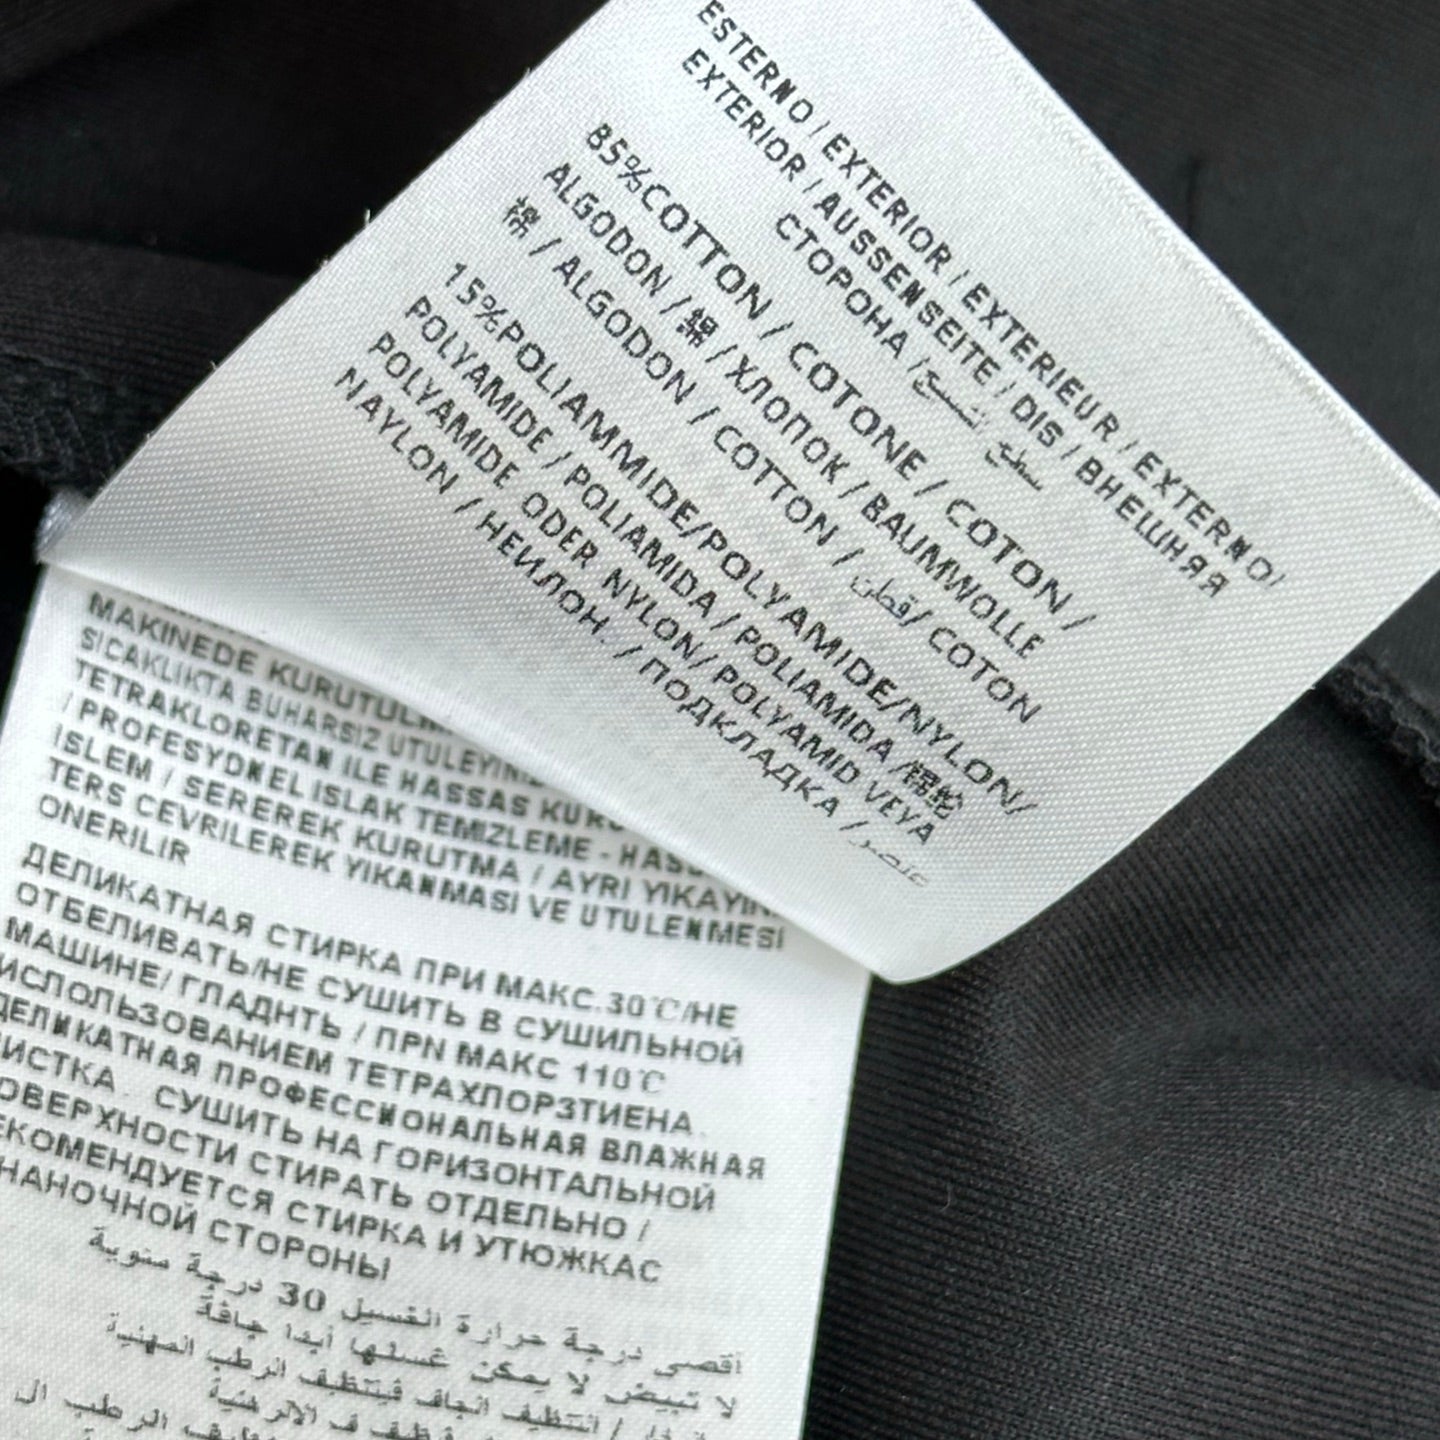 ESTERNO / EXTERIOR / EXTERIEUR / EXTERNO/
EXTERIOR / AUSSENSEITE / DIS / ВНЕШНЯЯ
СТОРОНА / سطح النسيج
85%COTTON / COTONE / COTON /
ALGODON / 綿 / ХЛОПОК / BAUMWOLLE
棉 / ALGODON / COTTON / قطن / COTON
15%POLIAMMIDE/POLYAMIDE/NYLON/
POLYAMIDE / POLIAMIDA / POLIAMIDA /锦纶
POLYAMIDE ODER NYLON/ POLYAMID VEYA
NAYLON / НЕИЛОН. / ПОДКЛАДКА / عنصر
MAKINEDE
SICAKLIKTA BUHARSIZ
TETRAKLORETAN ILE HASSAS
/ PROFESYDNEL ISLAK TEMIZLEME -
ISLEM / SEREREK KURUTMA / AYRI
TERS CEVRILEREK YIKANMASI VE UTULENMESI
ONERILIR
ДЕЛИКАТНАЯ СТИРКА ПРИ МАКС.30℃/НЕ
ОТБЕЛИВАТЬ/НЕ СУШИТЬ В СУШИЛЬНОЙ
МАШИНЕ/ ГЛАДНТЬ / ПРN МАКС 110℃
ИСПОЛЬЗОВАНИЕМ ТЕТРАХЛОРЗТИЕНА.
ДЕЛИКАТНАЯ ПРОФЕССИОНАЛЬНАЯ ВЛАЖНАЯ
СУШИТЬ НА ГОРИЗОНТАЛЬНОЙ
СТИРАТЬ ОТДЕЛЬНО /
СТИРКА И УТЮЖКАС
СТОРОНЫ
أقصى درجة حرارة الغسيل 30 درجة مئوية
لا تبيض لا يمكن غسلها أبدا جافة